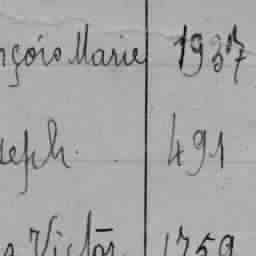 nçois Marie 1937
seph. 491
Victor 1759